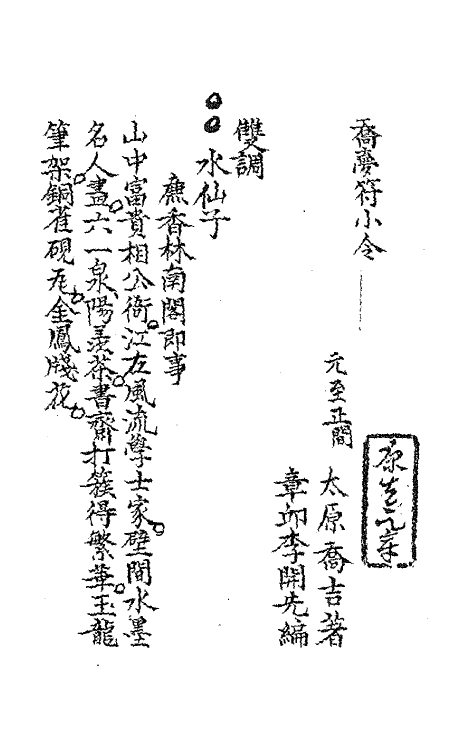 喬夢符小令
元至正間
太原喬吉著
章邱李開先編
雙調
水仙子
廉香林南閣即事
山中富貴相公衙江左風流學士家壁間水墨
名人畫六一泉陽羨茶書齋打簇得繁華玉龍
筆架銅雀硯瓦金鳳牋花